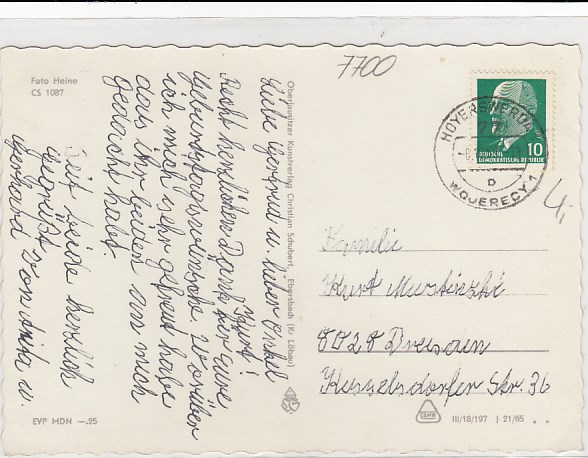 Foto Heine
CS 1087
7700
Liebe Gertrud u. lieber Onkel
Kurt!
Recht herzlichen Dank für Eure
Geburtstagswünsche, worüber
ich mich sehr gefreut habe
das ihr beiden an mich
gedacht habt.
Seit beide herzlich
gegrüßt von u.
Gerhard
Oberlausitzer Kunstverlag Christian Schubert, Ebersbach (Kr. Löbau)
EVP MDN —.25
HOYERSWERDA
77
-6.
D
WOJERECY 1
10
DEUTSCHE
DEMOKRATISCHE REPUBLIK
4,-
Familie
Kurt
8028 Dresden
Kesselsdorfer Str. 36
III/18/197 I 21/65